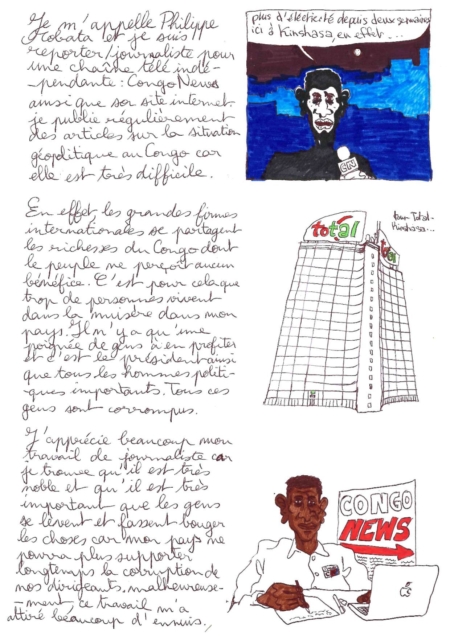 Je m'appelle Philippe
tobata et je suis
reporter/journaliste pour
une chaîne télé indé-
-pendante: Congo News
ainsi que son site internet.
je publie régulièrement
des articles sur la situation
géopolitique au Congo car
elle est très difficile.
plus d'électricité depuis deux semaines
ici à Kinshasa, en effet...
CN
En effet, les grandes firmes
internationales se partagent
les richesses du Congo dont
le peuple ne perçoit aucun
bénéfice. C'est pour cela que
trop de personnes vivent
dans la misère dans mon
pays. Il n'y a qu'une
poignée de gens à en profiter
et c'est le président ainsi
que tous les hommes politi-
-ques importants. Tous ces
gens sont corrompus.
total
total
Tour Total-
Kinshasa...
J'apprécie beaucoup mon
travail de journaliste car
je trouve qu'il est très
noble et qu'il est très
important que les gens
se lèvent et fassent bouger
les choses car mon pays ne
pourra plus supporter
longtemps la corruption de
nos dirigeants. malheureuse-
-ment, ce travail m'a
attiré beaucoup d'ennuis,
CONGO
NEWS